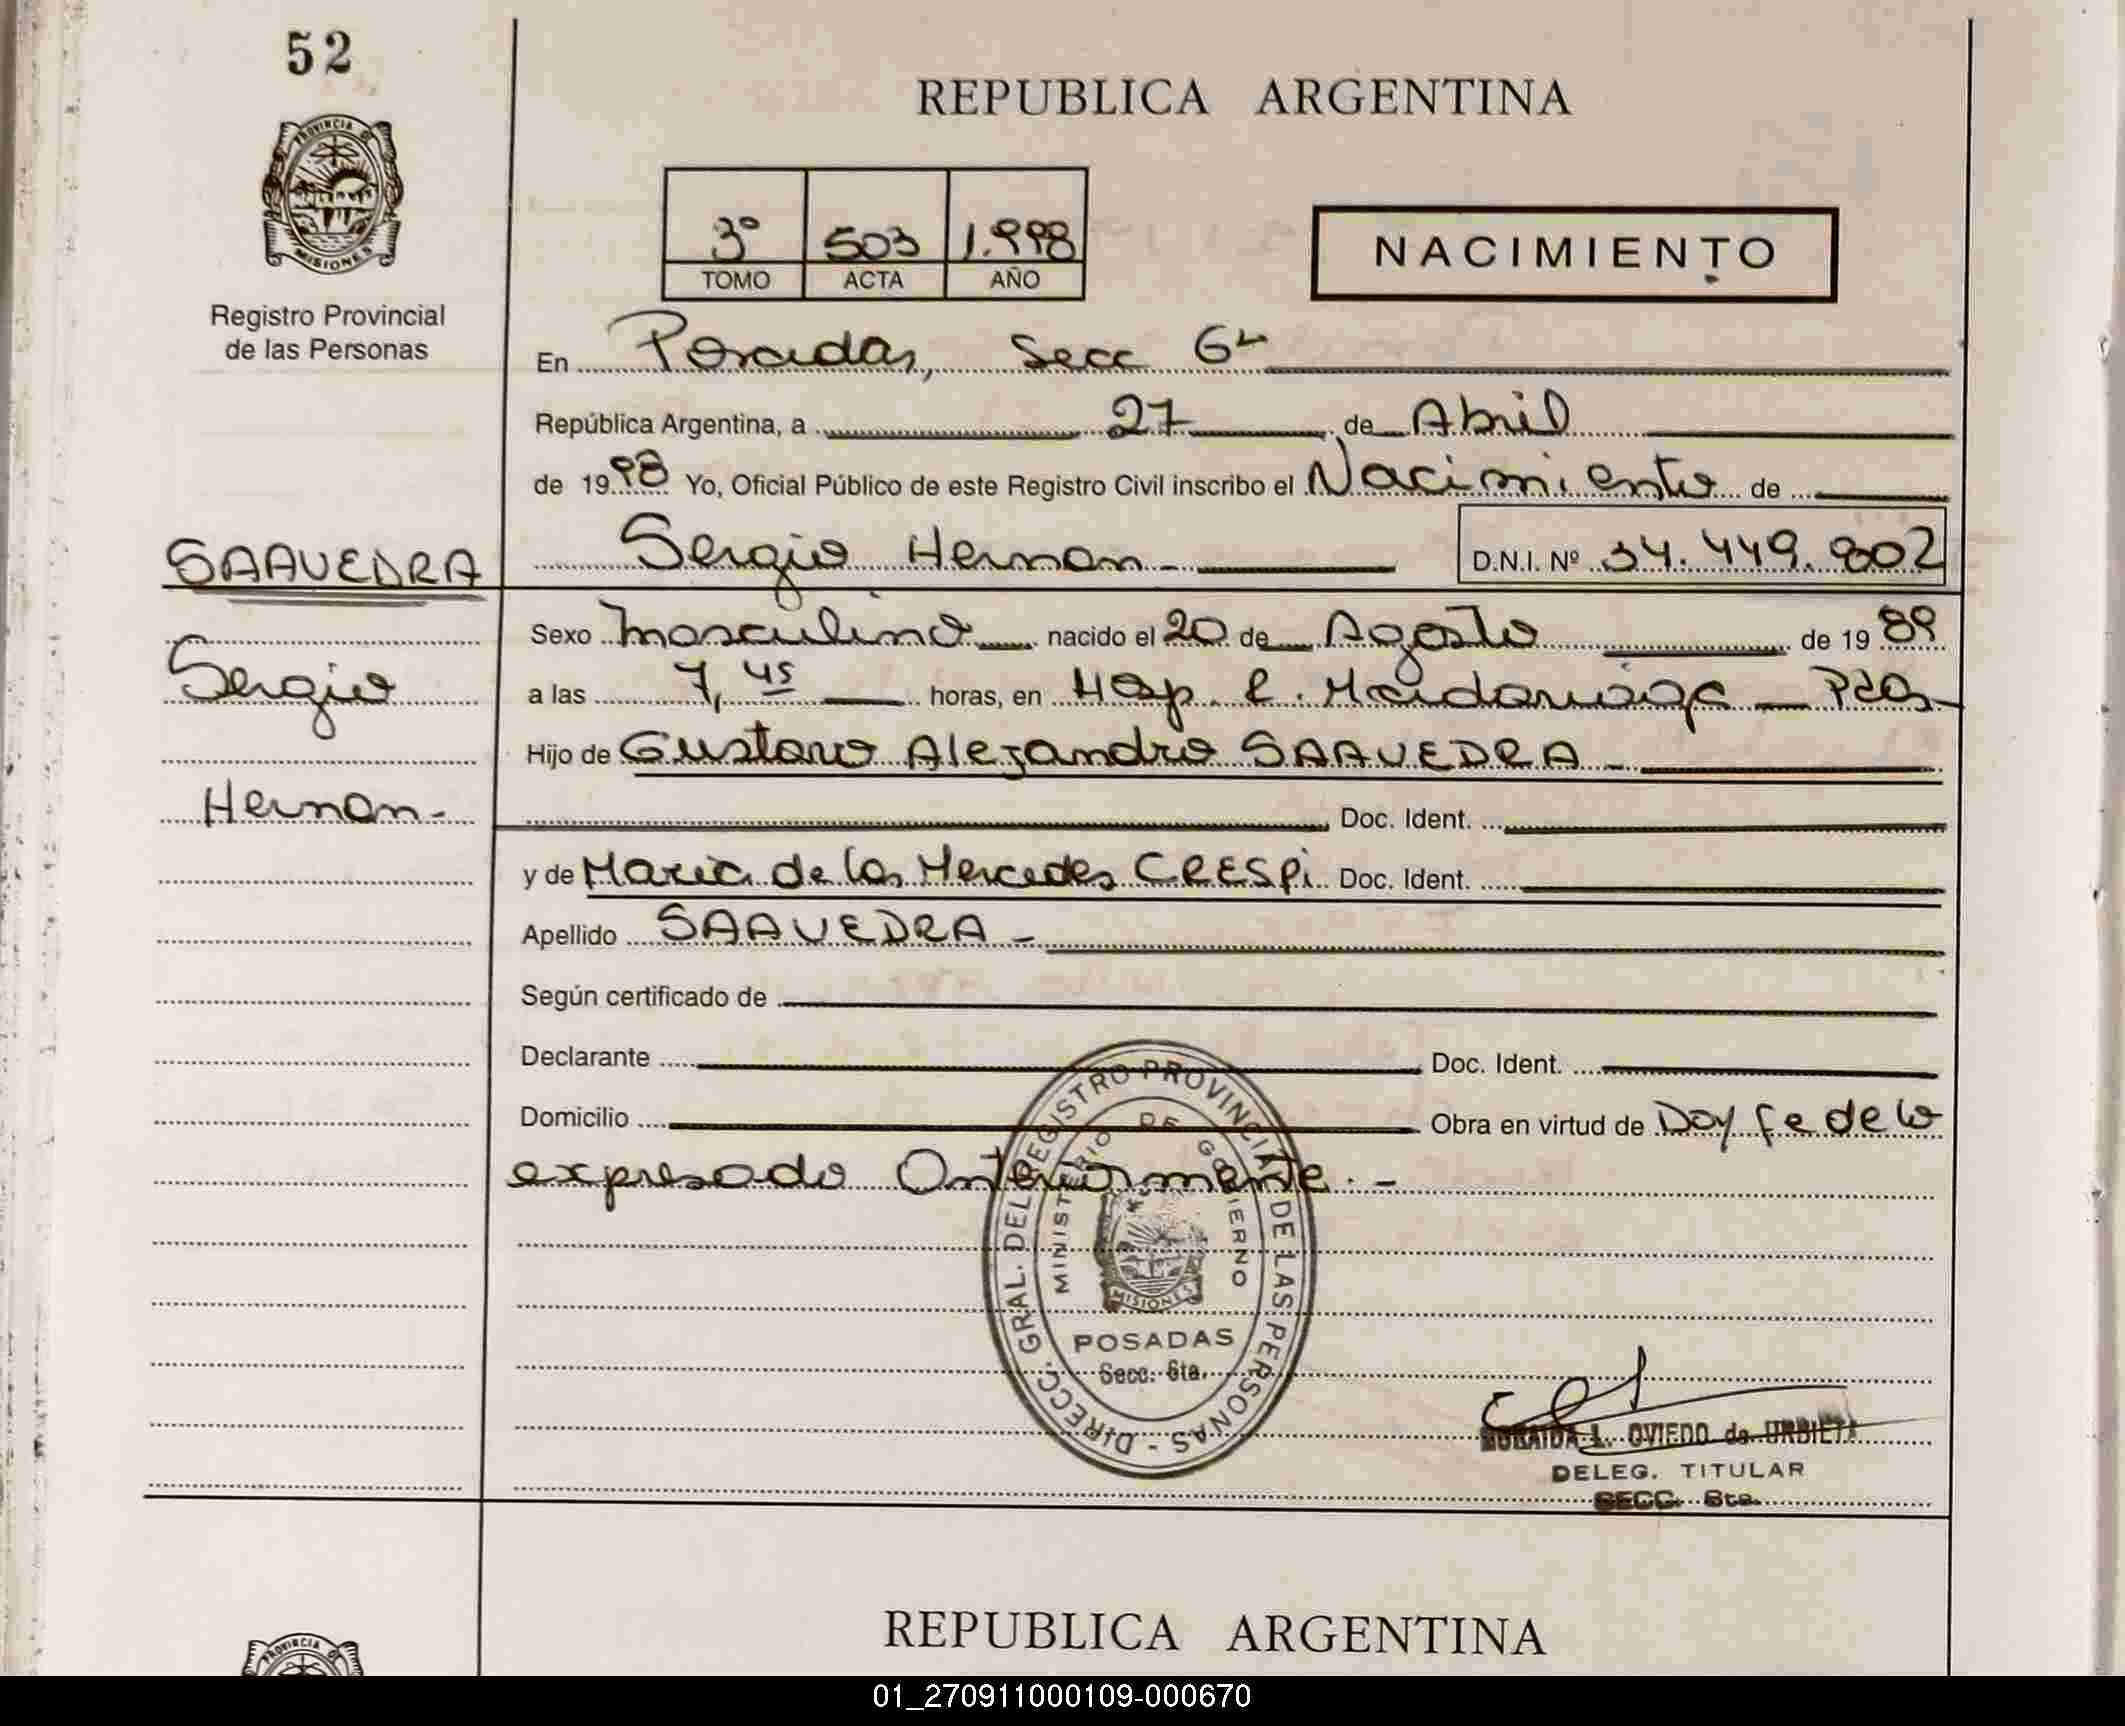 52
REPUBLICA ARGENTINA
PROVINCIA DE
MISIONES
Registro Provincial
de las Personas
3º 503 1.998
TOMO ACTA AÑO
NACIMIENTO
En Posadas, Secc 6ta
República Argentina, a 27 de Abril
de 1998 Yo, Oficial Público de este Registro Civil inscribo el Nacimiento de
SAAVEDRA
Sergio Hernan - D.N.I. Nº 34.449.802
Sexo Masculino nacido el 20 de Agosto de 1989
Sergio
a las 7,45 horas, en Hosp. R. Madariaga - Pdas-
Hijo de Gustavo Alejandro SAAVEDRA -
Hernan-
Doc. Ident.
y de Maria de las Mercedes CRESPI Doc. Ident.
Apellido SAAVEDRA -
Según certificado de
Declarante Doc. Ident.
Domicilio Obra en virtud de Doy fe de lo
expresado Anteriormente. -
DIRECC. GRAL. DEL REGISTRO PROVINCIAL DE LAS PERSONAS -
MINISTERIO DE GOBIERNO
MISIONES
POSADAS
Secc. 6ta.
L. OVIEDO de URBIETA
DELEG. TITULAR
SECC. 6ta.
REPUBLICA ARGENTINA
PROVINCIA DE
01_270911000109-000670